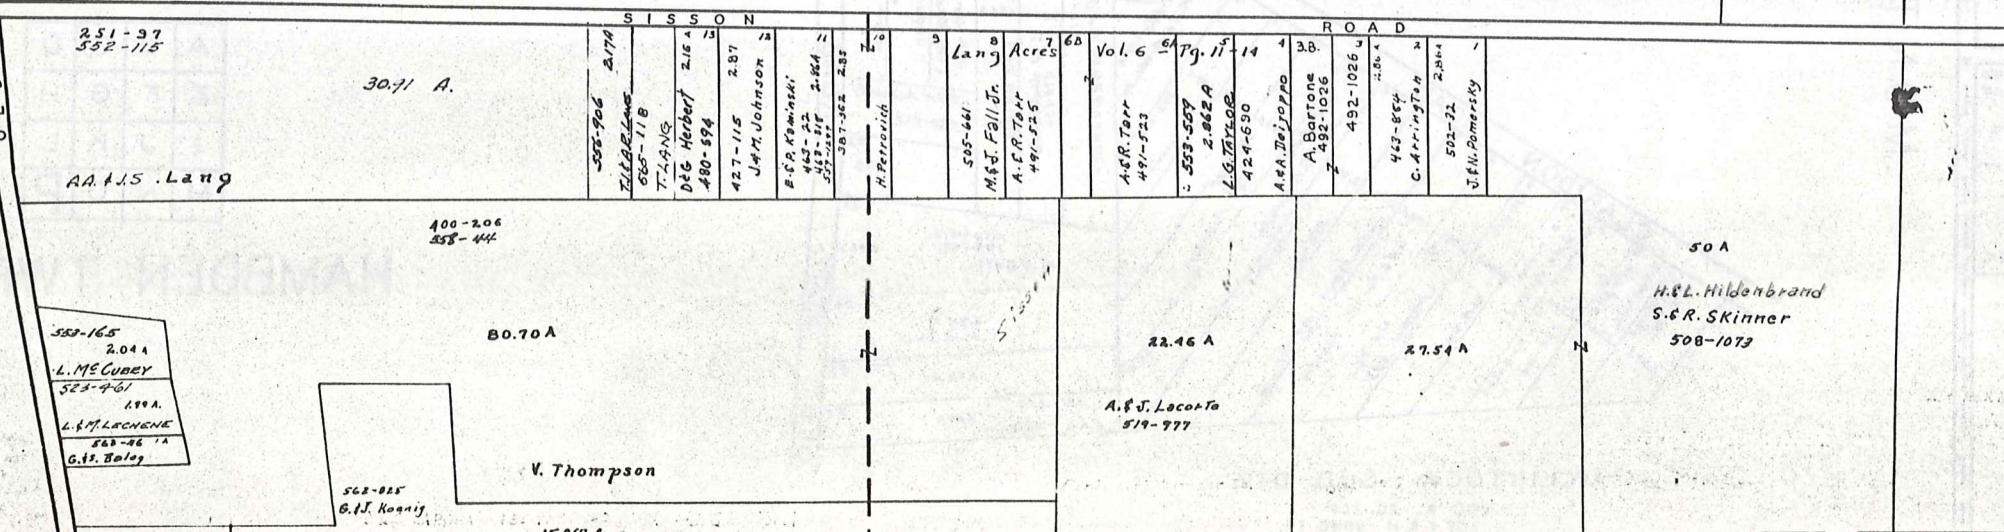 SISSON ROAD
251-97
552-115
30.91 A.
A.A. & J.S. Lang
556-906 2.17A
T.J. & A.R. Lang
565-118
T. LANG
D & G Herbert 2.16 A 13
480-594
427-115 2.87 12
J.&M. Johnson
E. & P. Kaminski 11
463-22 2.86A
463-318
387-362 2.85
10
H. Petrovich
9
Lang Acres Vol. 6 Pg. 11-14
8
505-661
M.&J. Fall Jr.
7
A. & R. Tarr
491-525
6B
6A
A.&R. Tarr
491-523
5
553-559
2.862 A
L.G. TAYLOR
424-690
4
A.&A. Deijoppo
3.B.
A. Barrone
492-1026
3
492-1026
2
463-854
C. Arrington
1
502-32
J.&N. Pomersky
400-206
558-44
80.70 A
V. Thompson
553-165
2.04 A
L. McCUBEY
523-461
1.99 A.
L.&M. LECHENE
568-46 1A
G.&S. Balog
562-025
G.&J. Koenig
Sisson
22.46 A
A. & J. Lacorte
519-977
27.54 A
50 A
H.&L. Hildenbrand
S.&R. Skinner
508-1073
HAMBDEN TW